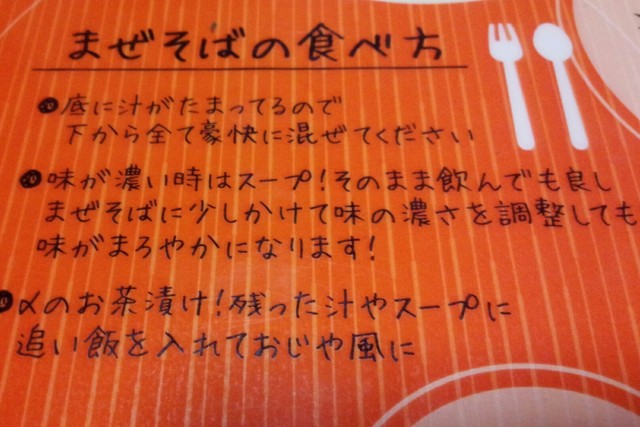 まぜそばの食べ方
底に汁がたまってるので
下から全て豪快に混ぜてください
味が濃い時はスープ!そのまま飲んでも良し
まぜそばに少しかけて味の濃さを調整しても
味がまろやかになります!
〆のお茶漬け!残った汁やスープに
追い飯を入れておじや風に